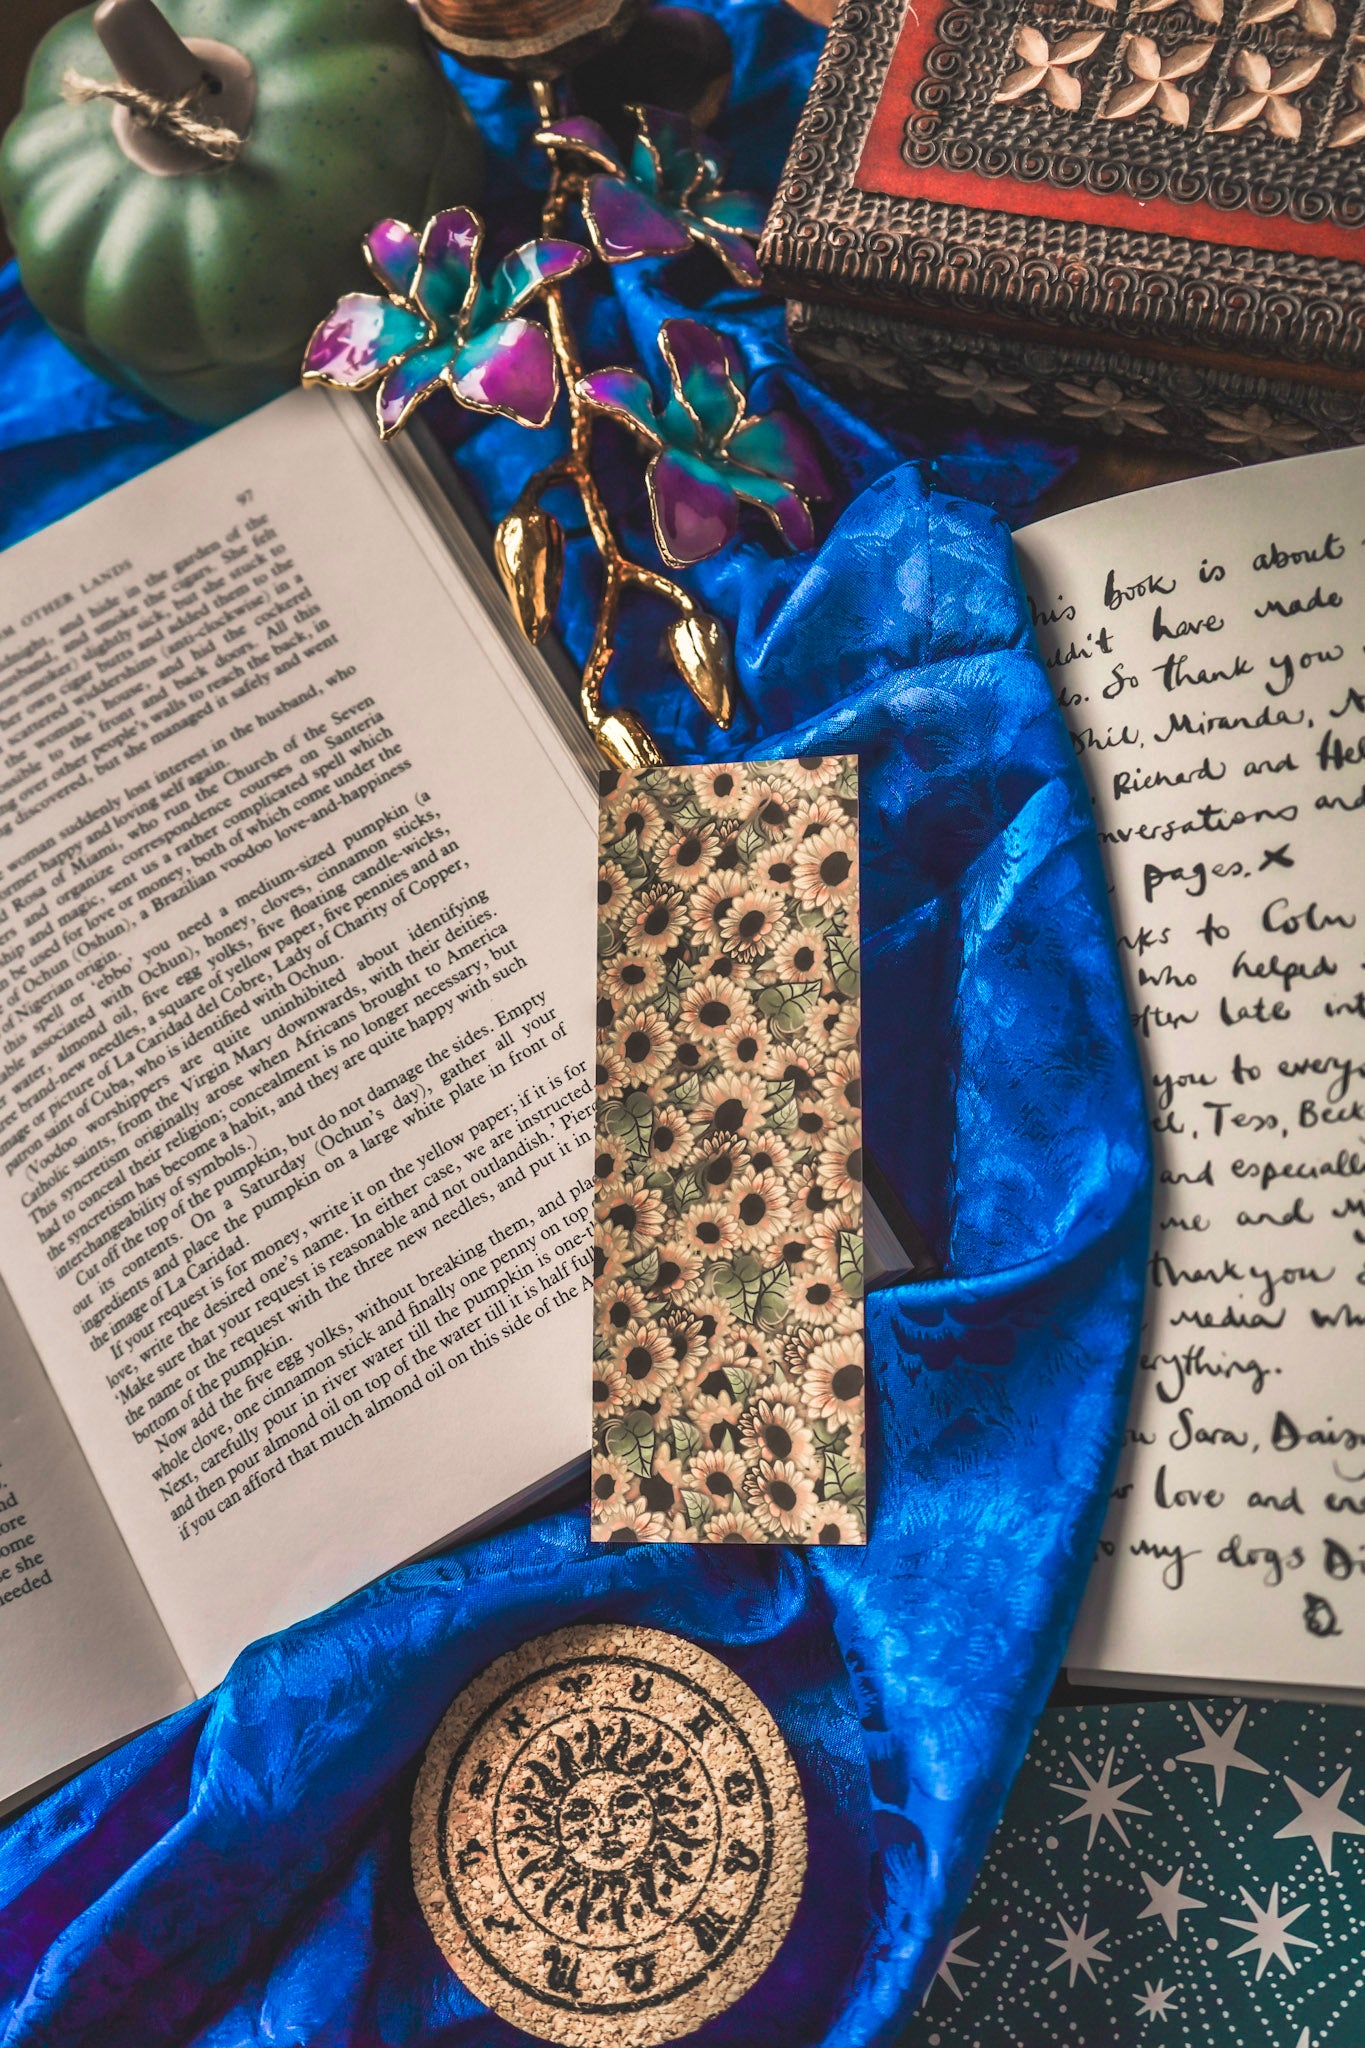 97
OTHER LANDS
and hide in the garden of the
husband, and smoke the cigars. She felt
slightly sick, but she stuck to
her own cigar butts and added them to the
scattered widdershins (anti-clockwise) in a
the woman's house, and hid the cockerel
to the front and back doors. All this
over other people's walls to reach the back, in
discovered, but she managed it safely and went
woman suddenly lost interest in the husband, who
happy and loving self again.
Rosa of Miami, who run the Church of the Seven
and organize correspondence courses on Santeria
and magic, sent us a rather complicated spell which
be used for love or money, both of which come under the
of Ochun (Oshun), a Brazilian voodoo love-and-happiness
of Nigerian origin.
this spell or 'ebbo' you need a medium-sized pumpkin (a
associated with Ochun), honey, cloves, cinnamon sticks,
water, almond oil, five egg yolks, five floating candle-wicks,
brand-new needles, a square of yellow paper, five pennies and an
image or picture of La Caridad del Cobre, Lady of Charity of Copper,
patron saint of Cuba, who is identified with Ochun.
(Voodoo worshippers are quite uninhibited about identifying
Catholic saints, from the Virgin Mary downwards, with their deities.
This syncretism originally arose when Africans brought to America
had to conceal their religion; concealment is no longer necessary, but
the syncretism has become a habit, and they are quite happy with such
interchangeability of symbols.)
Cut off the top of the pumpkin, but do not damage the sides. Empty
out its contents. On a Saturday (Ochun's day), gather all your
ingredients and place the pumpkin on a large white plate in front of
the image of La Caridad.
If your request is for money, write it on the yellow paper; if it is for
love, write the desired one's name. In either case, we are instructed
'Make sure that your request is reasonable and not outlandish.'
the name or the request with the three new needles, and put it in
bottom of the pumpkin.
Now add the five egg yolks, without breaking them, and
whole clove, one cinnamon stick and finally one penny on top
Next, carefully pour in river water till the pumpkin is
and then pour almond oil on top of the water till it is half full
if you can afford that much almond oil on this side of the
and
she
needed
book is about
have made
So thank you
Phil, Miranda,
Richard and
and
pages. x
to Colm
who helped
often late
you to
Tess,
and
me and
thank you
media
Sara,
love and
my dogs